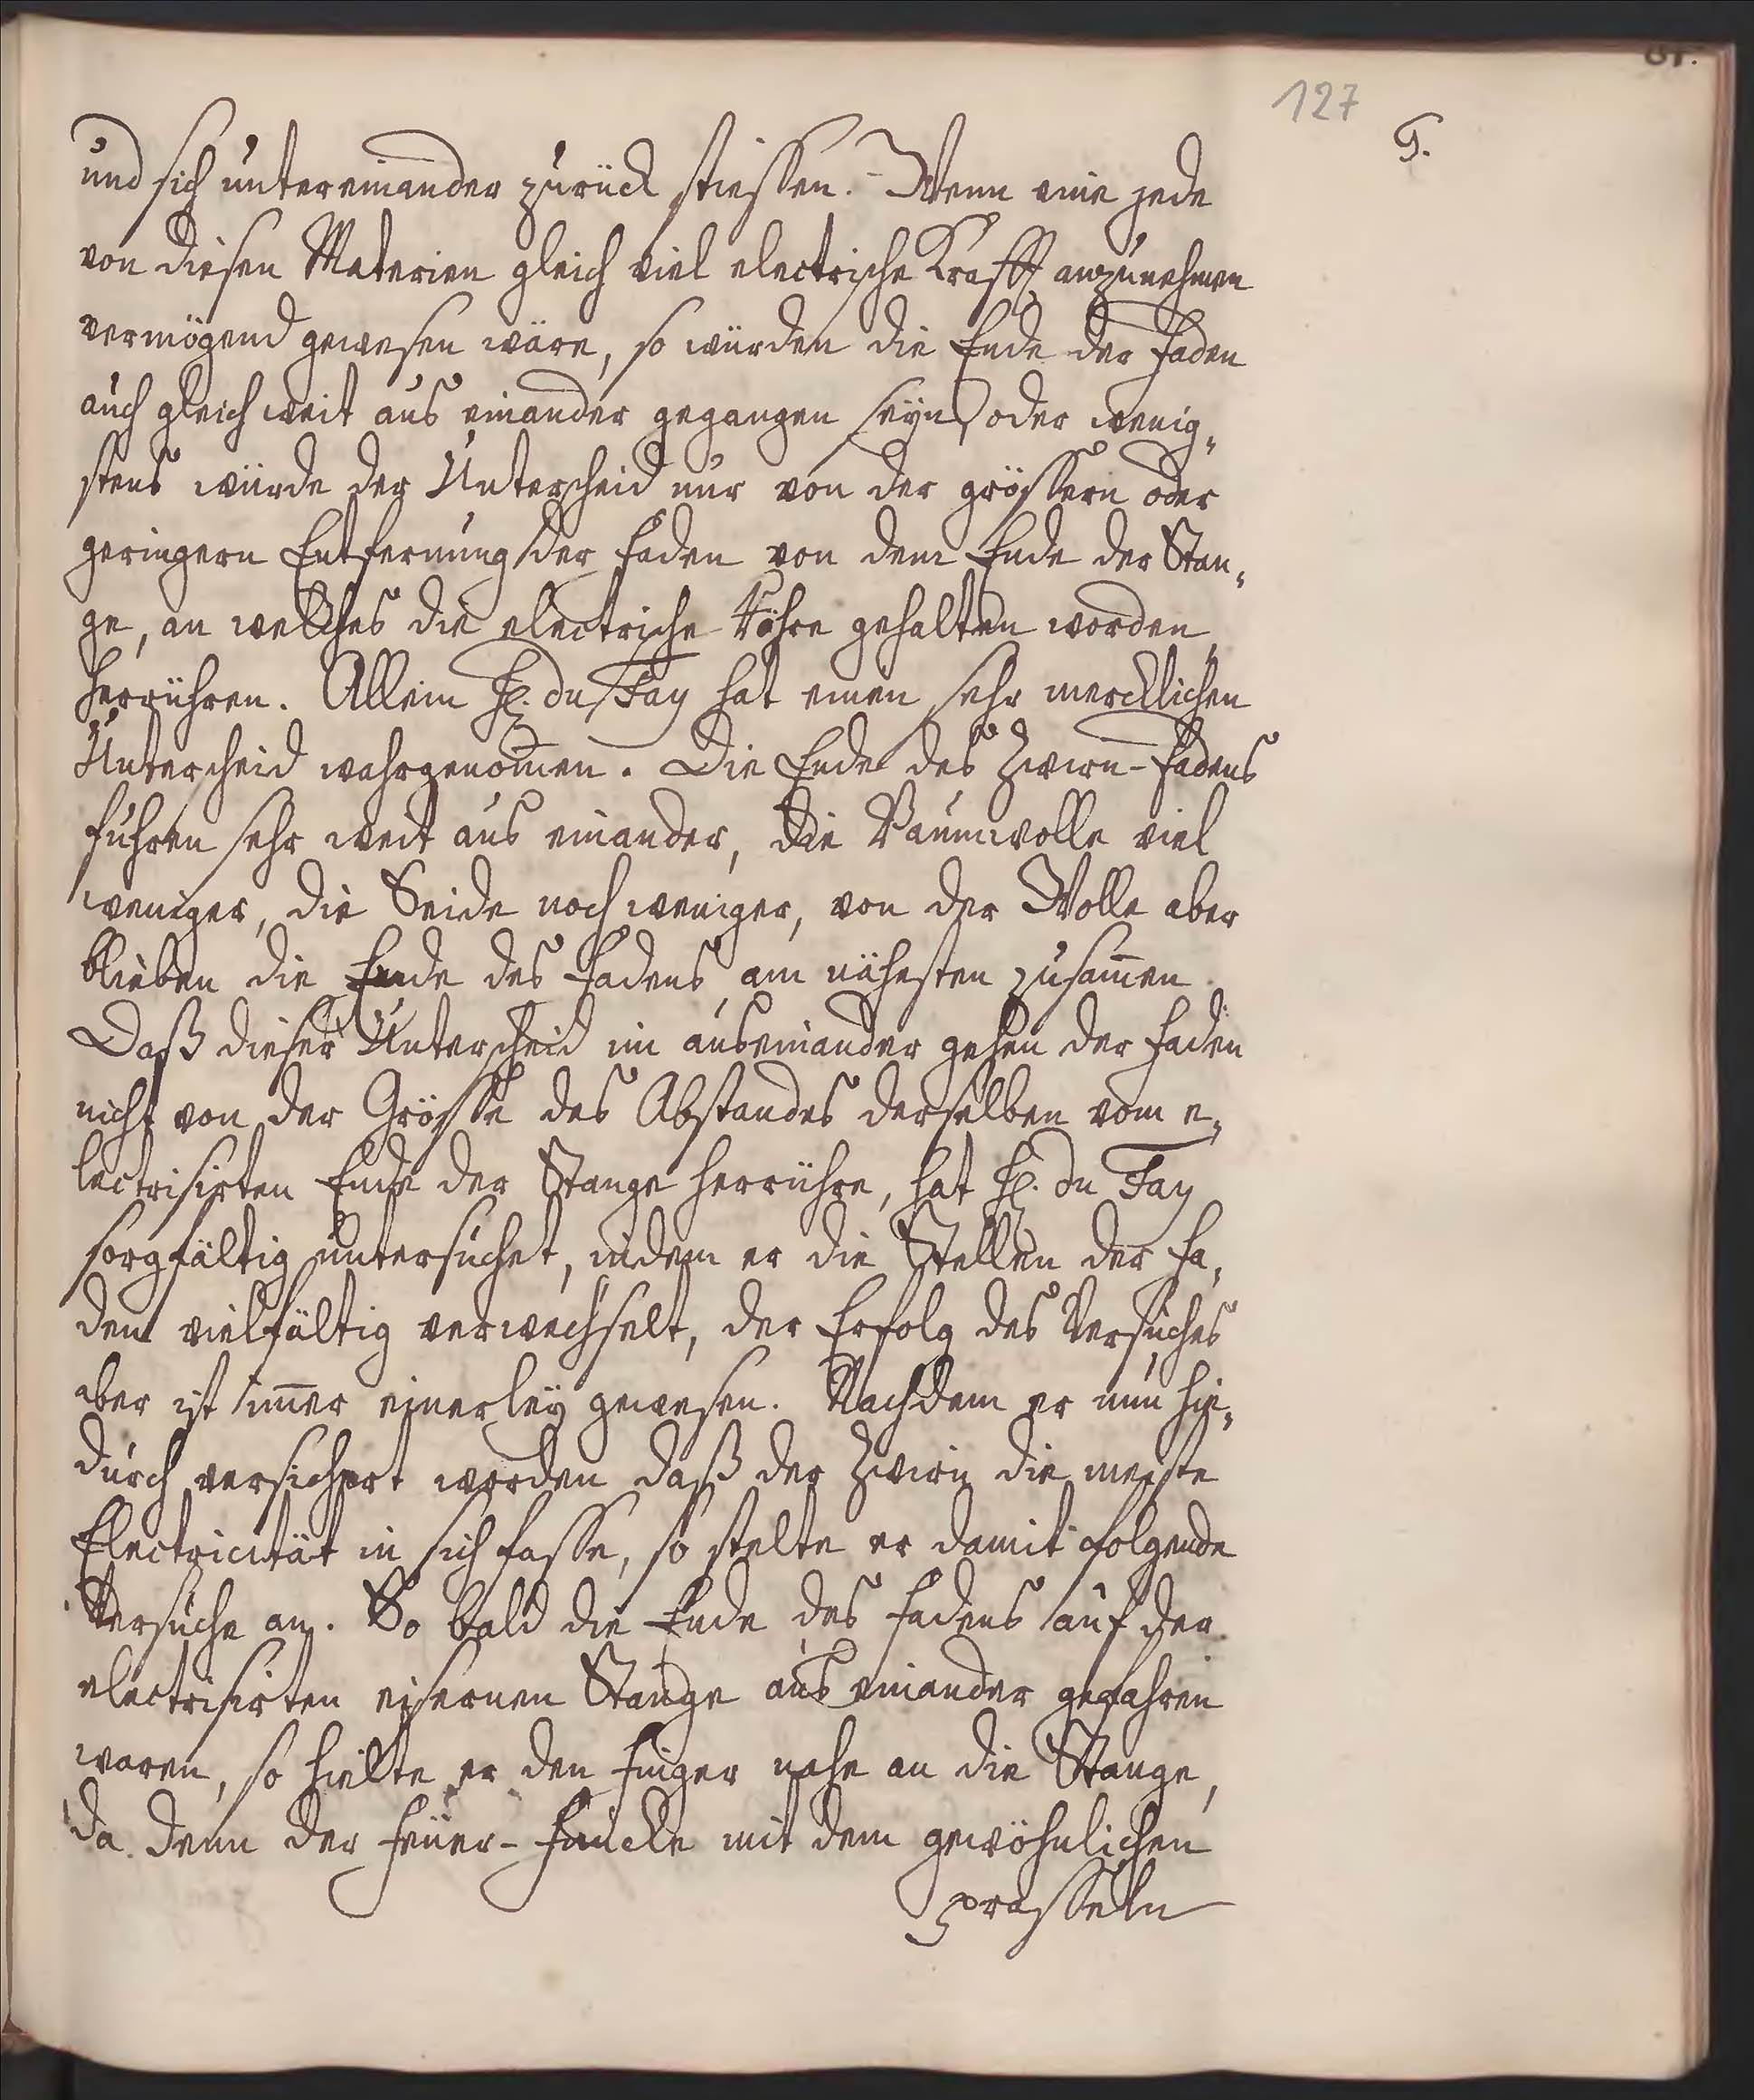 127
G.
und sich untereinander zurück stiessen. Wenn eine jede
von diesen Materien gleich viel electrische Krafft anzunehmen
vermögend gewesen wäre, so würden die Ende der Faden
auch gleich weit aus einander gegangen seyn, oder wenig„
stens würde der Unterscheid nur von der grössern oder
geringern Entfernung der Faden von dem Ende der Stan„
ge, an welches die electrische Röhre gehalten worden,
herrühren. Allein H. du Fay hat einen sehr mercklichen
Unterscheid wahrgenom̄en. Die Ende des Zwirn-Fadens
fuhren sehr weit aus einander, die Baumwolle viel
weniger, die Seide noch weniger, von der Wolle aber
blieben die Ende des Fadens am nähesten zusam̄en.
Daß dieser Unterscheid im auseinander gehen der Faden
nicht von der Grösse des Abstandes derselben vom e„
lectrisirten Ende der Stange herrühre, hat H. du Fay
sorgfältig untersuchet, indem er die Stellen der Fa„
den vielfältig verwechselt, der Erfolg des Versuches
aber ist im̄er einerley gewesen. Nachdem er nun hie„
durch versichert worden daß der Zwirn die meiste
Electricität in sich fasse, so stelte er damit folgende
Versuche an. So bald die Ende des Fadens auf der
electrisirten eisernen Stange aus einander gefahren
waren, so hielte er den Finger nahe an die Stange,
da denn der Feüer-Funcke mit dem gewöhnlichen
prasseln